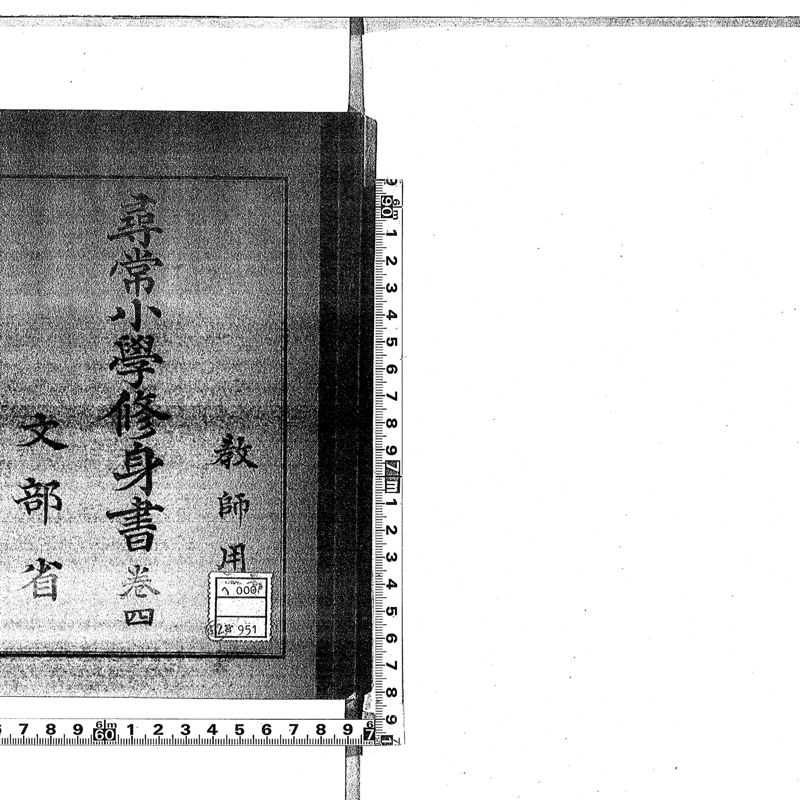 教師用
尋常小學修身書 卷四
文部省
951
9 6m 90 1 2 3 4 5 6 7 8 9 7m 1 2 3 4 5 6 7 8 9
7 8 9 6m 60 1 2 3 4 5 6 7 8 9